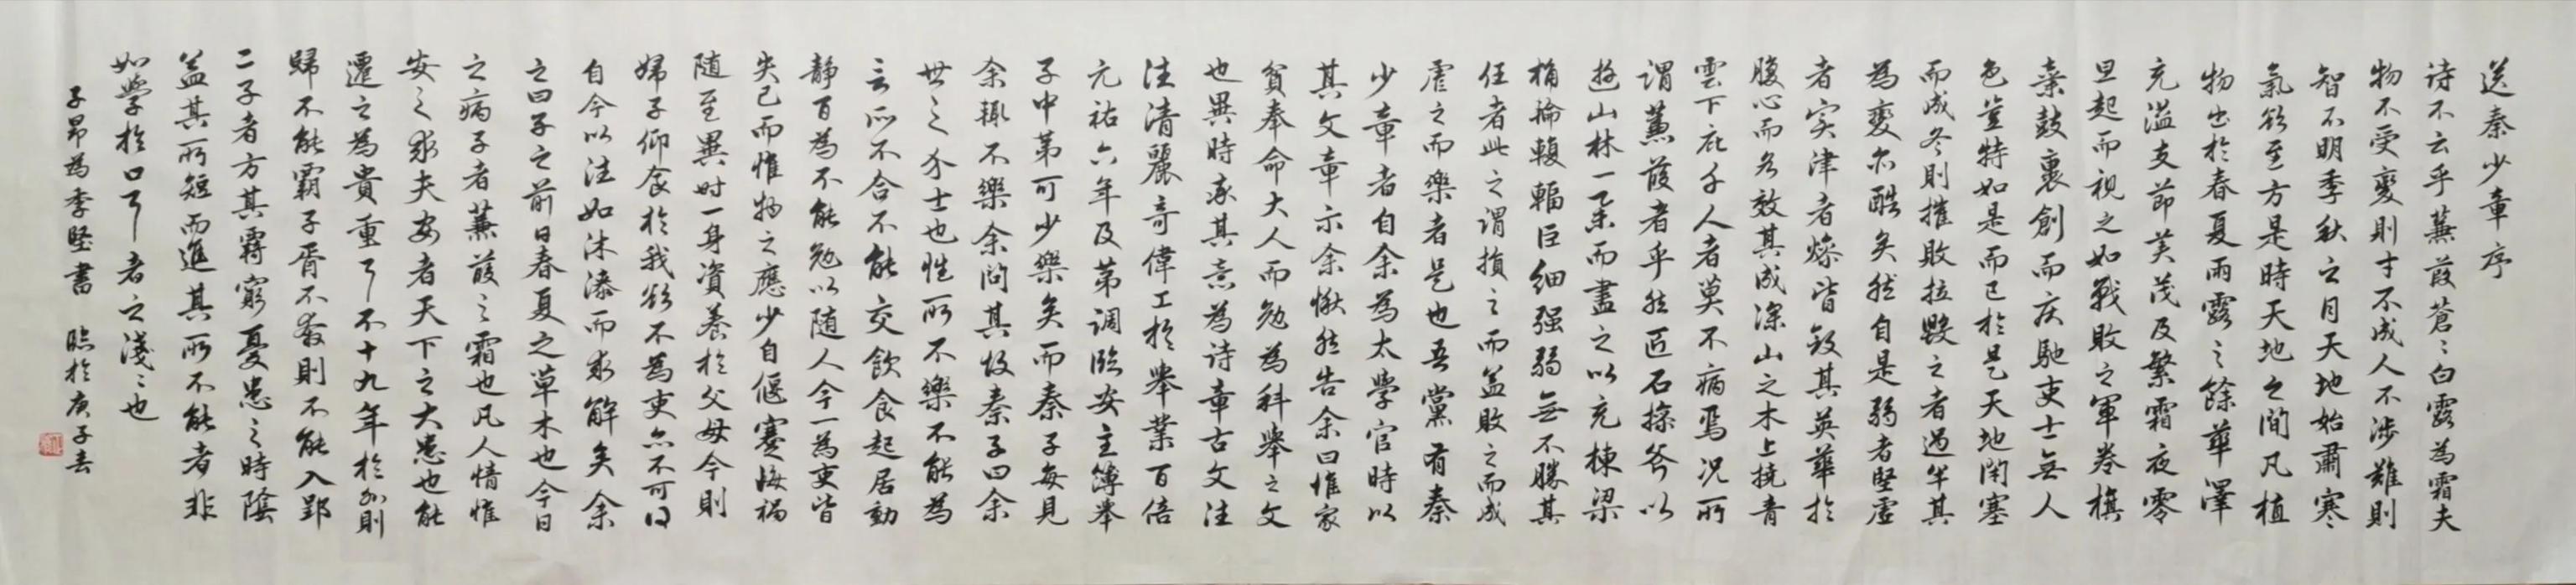 送秦少章序
诗不云乎蒹葭蒼〻白露為霜夫
物不受變則才不成人不涉難則
智不明季秋之月天地始肅寒
氣欲至方是時天地之間凡植
物出於春夏雨露之餘華澤
充溢支節美茂及繁霜夜零
旦起而視之如戰敗之軍卷旗
棄鼓裹創而疾馳吏士無人
色豈特如是而已於是天地閉塞
而成冬則摧敗拉毀之者過半其
為變亦酷矣然自是弱者堅虛
者实津者燥皆斂其英華於
腹心而各效其成深山之木上撓青
雲下庇千人者莫不病焉况所
謂蒹葭者乎然匠石操斧以
遊山林一舉而盡之以充棟梁
桷掄輹輻臣细强弱無不勝其
任者此之谓損之而益敗之而成
虐之而樂者是也吾黨有秦
少章者自余為太學官時以
其文章示余愀然告余曰惟家
貧奉命大人而勉為科舉之文
也異時率其意為诗章古文往
往清麗奇偉工於舉業百倍
元祐六年及第调臨安主簿舉
子中第可少樂矣而秦子每見
余輒不樂余问其故秦子曰余
世之介士也性所不樂不能為
言所不合不能交飲食起居動
静百為不能勉以随人今一為吏皆
失己而惟物之應少自偃蹇悔禍
随至異时一身資養於父母今則
婦子仰食於我欲不為吏亦不可得
自今以往如沐漆而求解矣余
之曰子之前日春夏之草木也今日
之病子者蒹葭之霜也凡人情惟
安之求夫安者天下之大患也能
遷之為貴重耳不十九年於外則
歸不能霸子胥不奔則不能入郢
二子者方其羇窮憂患之時陰
益其所短而進其所不能者非
如學於口耳者之淺〻也
子昂為季堅書 臨於庚子春